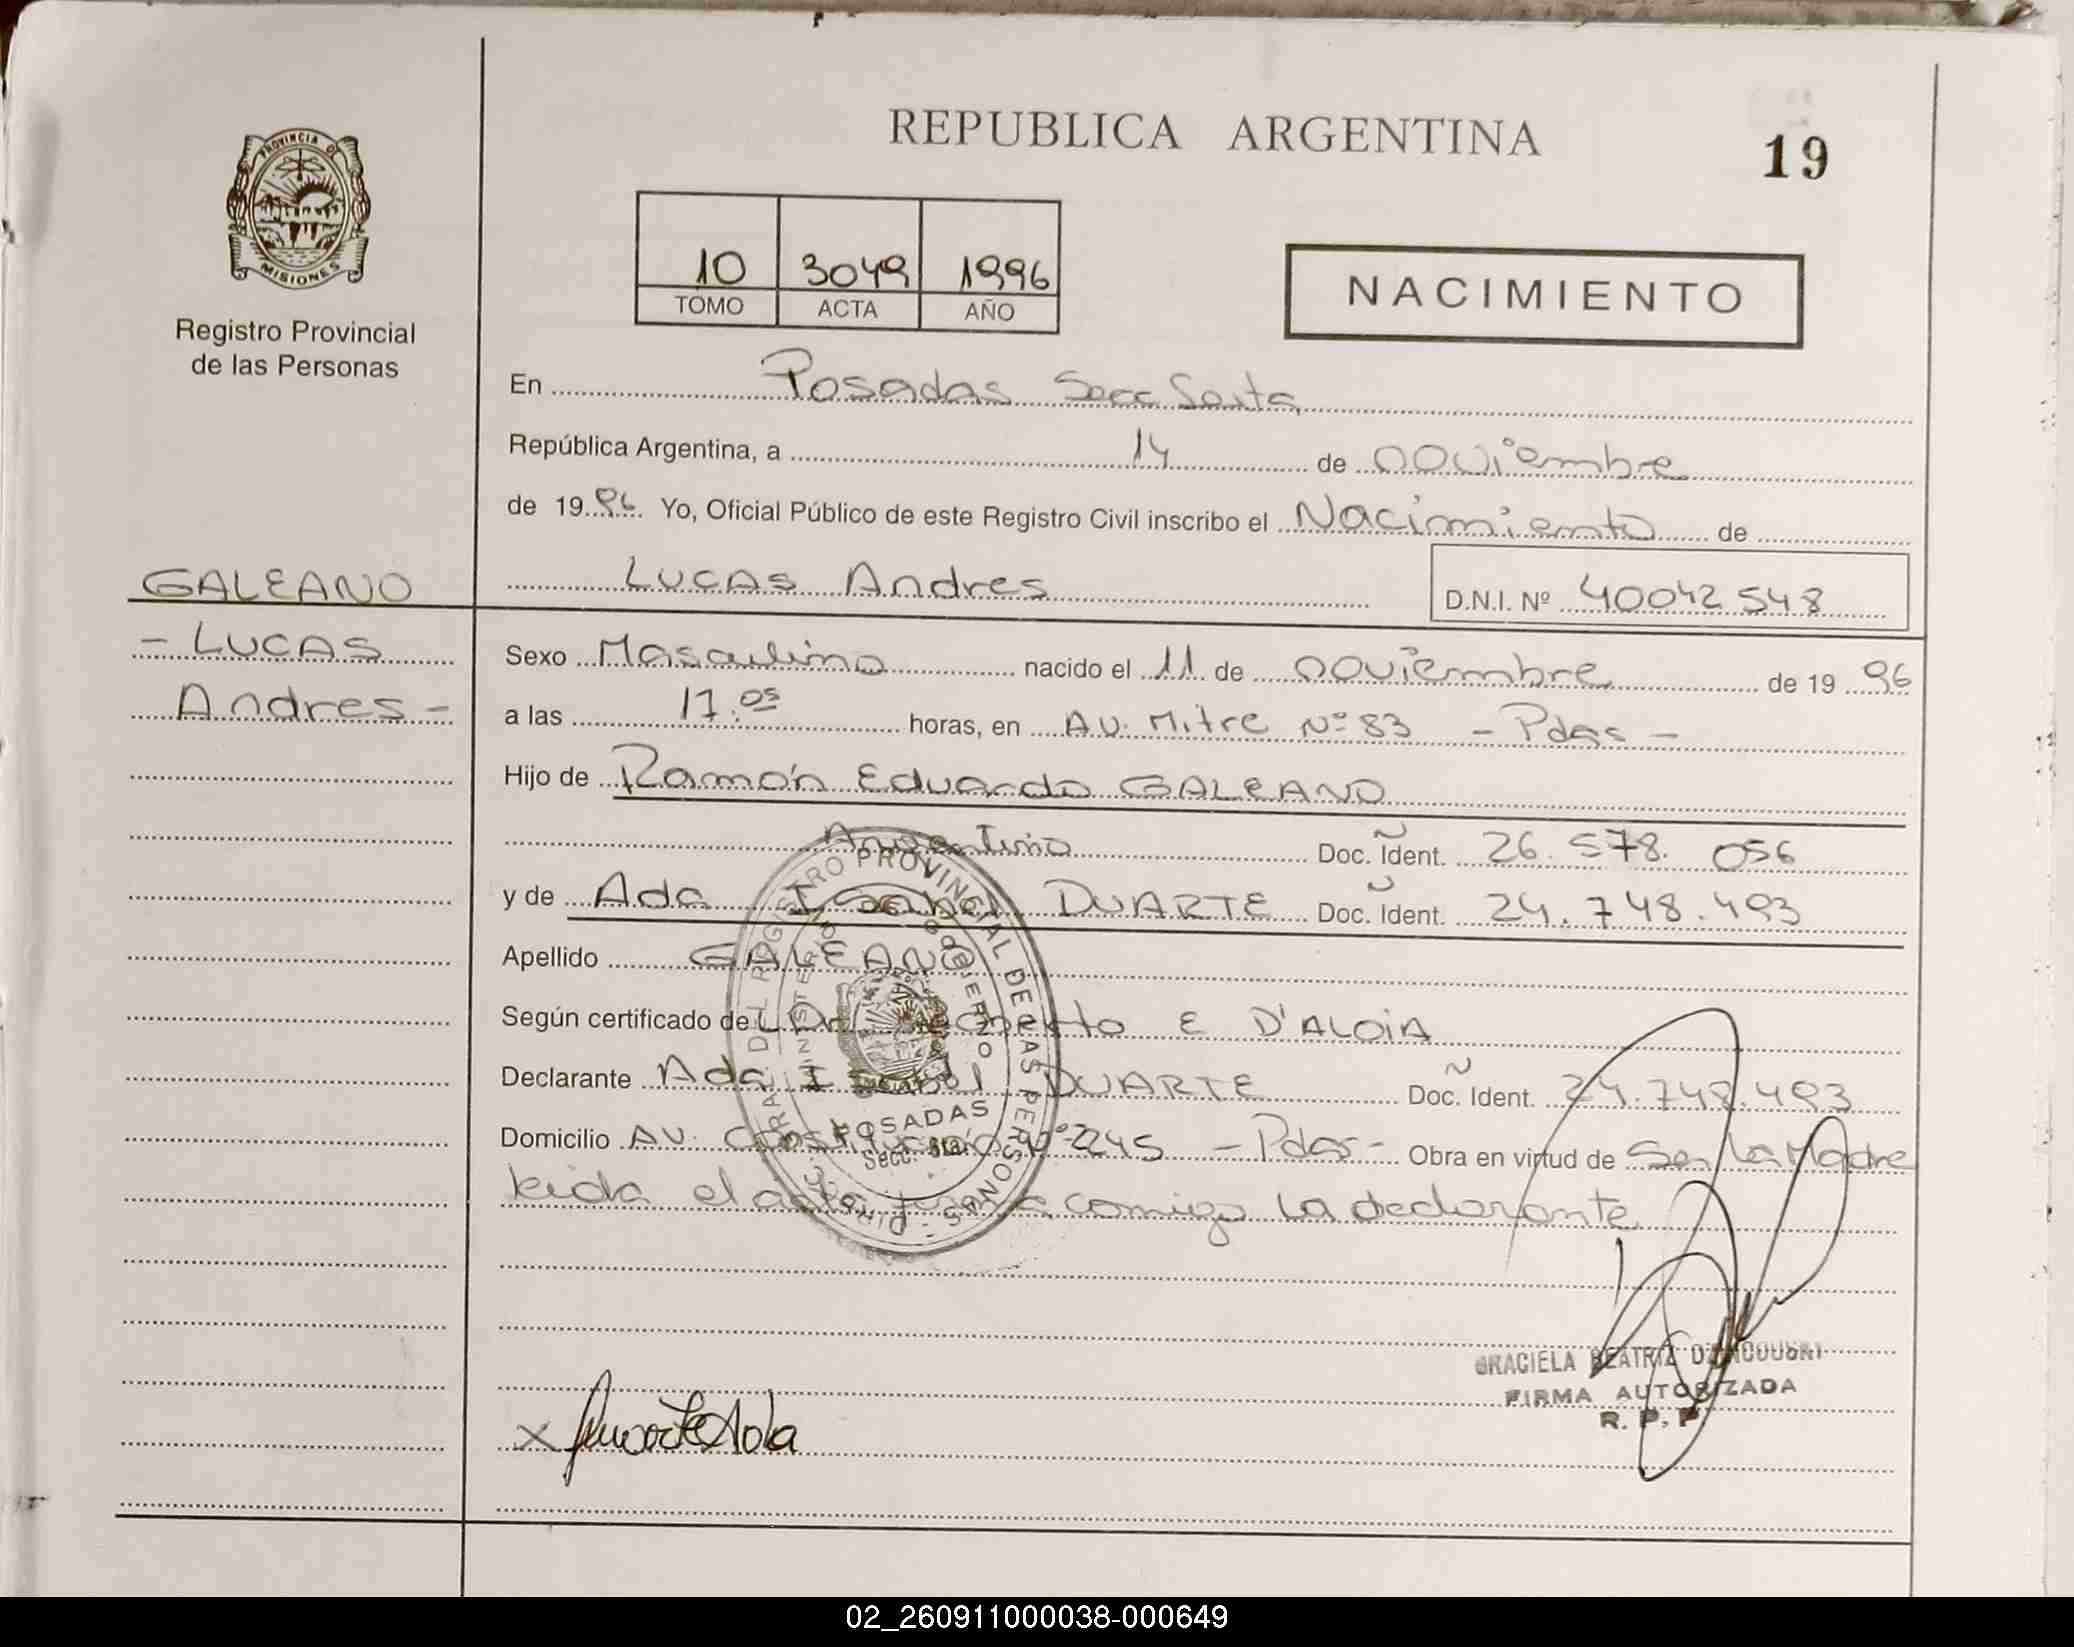 REPUBLICA ARGENTINA
19
PROVINCIA DE
MISIONES
Registro Provincial
de las Personas
10 3049 1996
TOMO ACTA AÑO
NACIMIENTO
En Posadas Secc Sexta
República Argentina, a 14 de noviembre
de 1996 Yo, Oficial Público de este Registro Civil inscribo el Nacimiento de
GALEANO
- LUCAS
Andres -
LUCAS Andres
D.N.I. Nº 40042548
Sexo Masculino nacido el 11 de noviembre de 1996
a las 17:05 horas, en AV. Mitre Nº 83 - Pdas -
Hijo de Ramón Eduardo GALEANO
Argentino Doc. Ident. 26.578.056
y de Ada Isabel DUARTE Doc. Ident. 24.748.493
Apellido GALEANO
Según certificado de Dr. Roberto E D'ALOIA
Declarante Ada Isabel DUARTE Doc. Ident. 24.748.493
Domicilio AV. Nº 2245 - Pdas - Obra en virtud de Ser La Madre
Leida el acta firma comigo La declarante
DIREC. GRAL. DEL REGISTRO PROVINCIAL DE LAS PERSONAS
MINISTERIO DE GOBIERNO
POSADAS
Secc. 6ta.
GRACIELA BEATRIZ
FIRMA AUTORIZADA
R. P. P.
x Duarte Ada
02_260911000038-000649